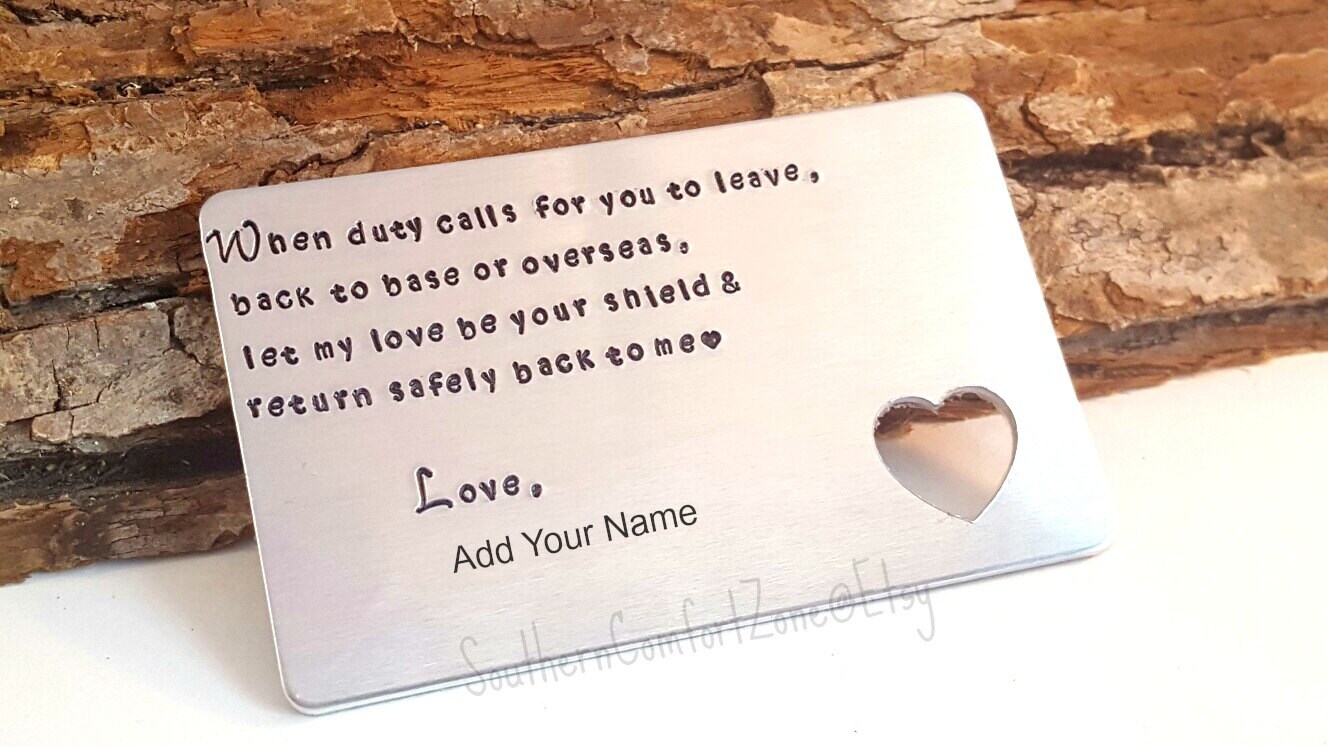 When duty calls for you to leave,
back to base or overseas,
let my love be your shield &
return safely back to me♥
Love,
Add Your Name
SouthernComfortZone@Etsy